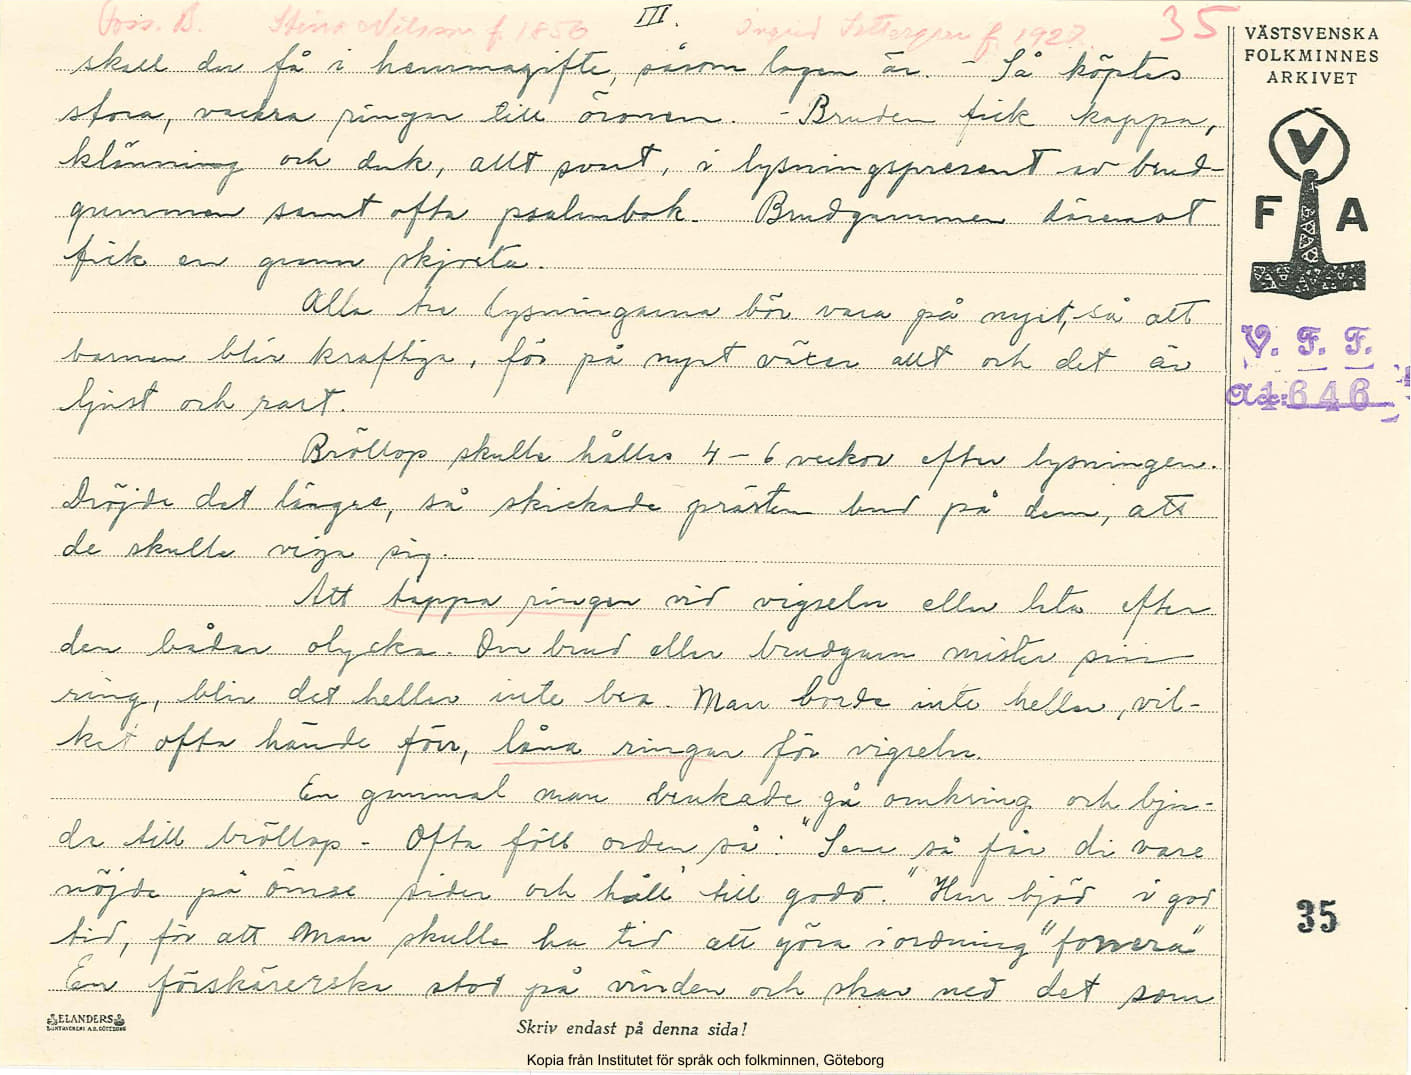 Foss. B. Stina Nilsson f. 1856 III. Ingrid Settergren f. 1927 35
skall du få i hemmagifte, såsom lagen är. - Så köptes
stora, vackra ringar till öronen. - Bruden fick kappa,
klänning och duk, allt svart, i lysningspresent av brud-
gummen samt ofta psalmbok. Brudgummen däremot
fick en grann skjorta.
Alla tre lysningarna bör vara på nyet, så att
barnen blir kraftiga, för på nyet växer allt och det är
ljust och rart.
Bröllop skulle hållas 4-6 veckor efter lysningen.
Dröjde det längre, så skickade prästen bud på dem, att
de skulle viga sig.
Att tappa ringen vid vigseln eller leta efter
den bådar olycka. Om brud eller brudgum mister sin
ring, blir det heller inte bra. Man borde inte heller, vil-
ket ofta hände förr, låna ringar för vigseln.
En gammal man brukade gå omkring och bju-
da till bröllop. - Ofta föll orden så: "Sen så får di vare
nöjda på ömse sider och håll till godo." Han bjöd i god
tid, för att man skulle ha tid att göra i ordning "
En förskärerska stod på vinden och skar ned det som
VÄSTSVENSKA
FOLKMINNES
ARKIVET
V
F A
V. F. F.
Acc: 1646
35
ELANDERS
BOKTRYCKERI A.B. GÖTEBORG
Skriv endast på denna sida!
Kopia från Institutet för språk och folkminnen, Göteborg